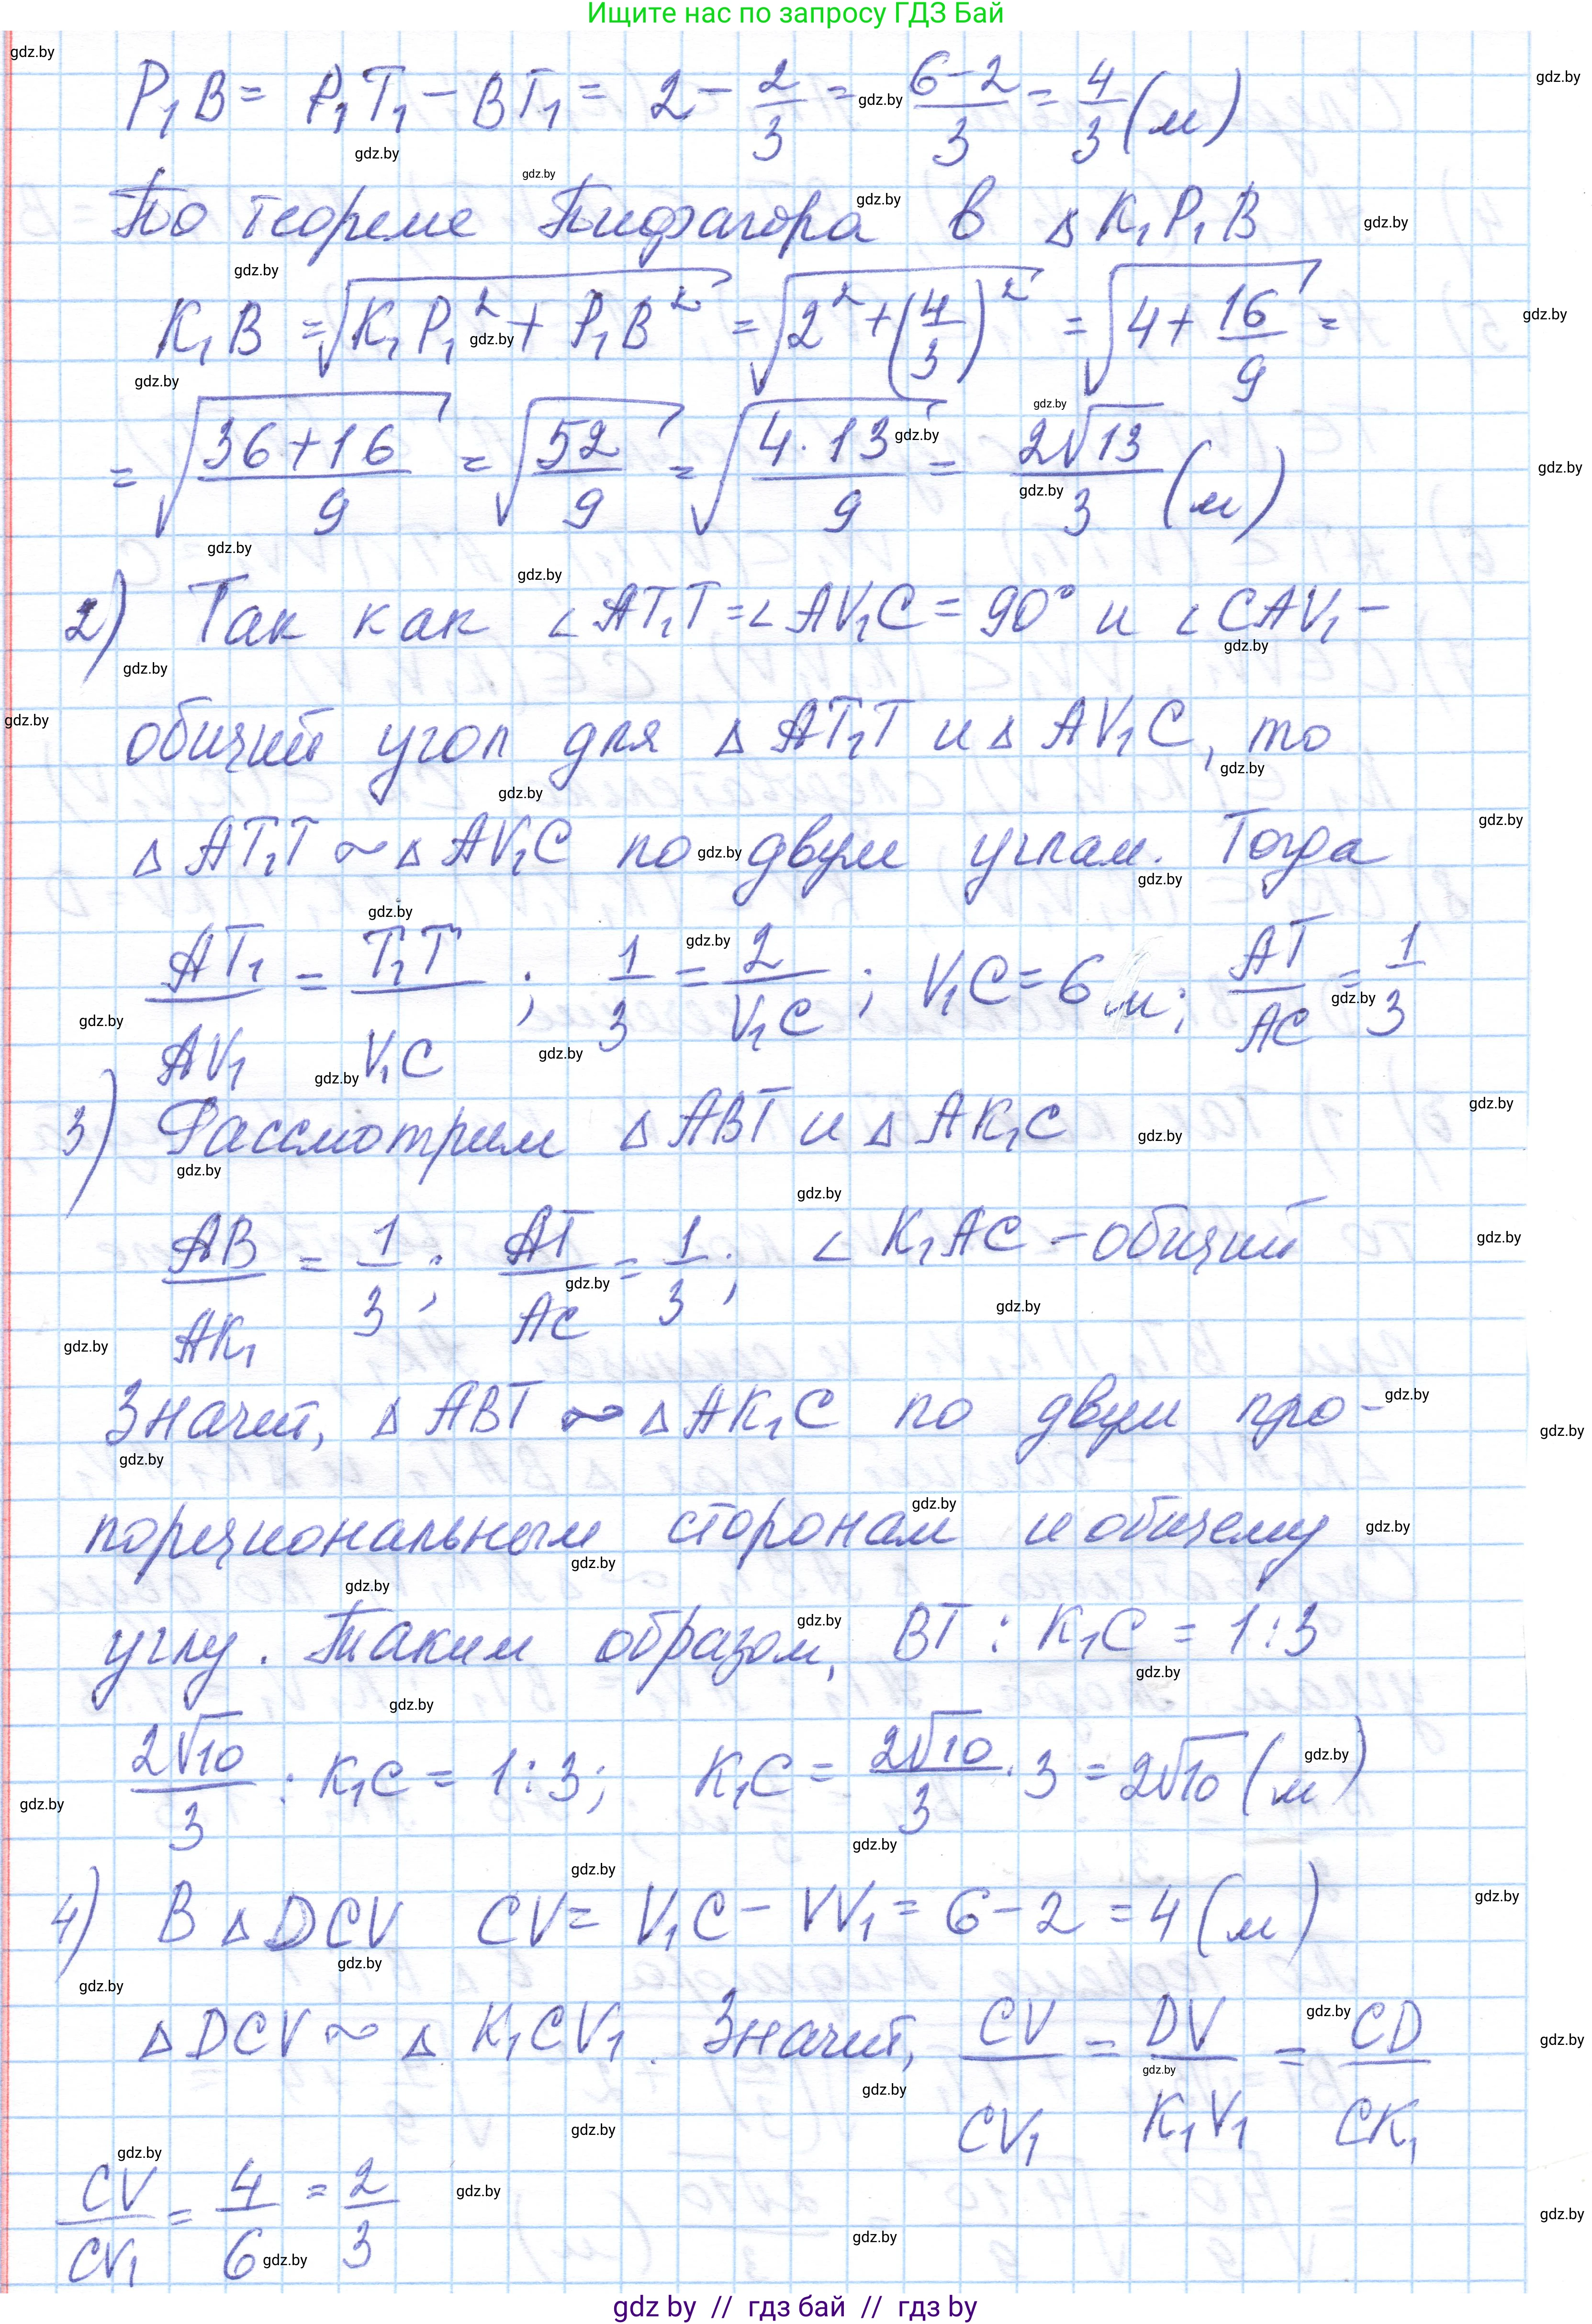 Ищите нас по запросу ГДЗ Бай
P₁B = P₁T₁ − BT₁ = 2 − 2/3 = (6−2)/3 = 4/3 (м)
По теореме Пифагора в Δ K₁P₁B
K₁B = √(K₁P₁² + P₁B²) = √(2² + (4/3)²) = √(4 + 16/9) =
= √((36+16)/9) = √(52/9) = √((4·13)/9) = 2√13/3 (м)
2) Так как ∠AT₁T = ∠AV₁C = 90° и ∠CAV₁ −
общий угол для Δ AT₁T и Δ AV₁C, то
Δ AT₁T ~ Δ AV₁C по двум углам. Тогда
AT₁/AV₁ = T₁T/V₁C ; 1/3 = 2/V₁C ; V₁C = 6 м; AT/AC = 1/3
3) Рассмотрим Δ ABT и Δ AK₁C
AB/AK₁ = 1/3 ; AT/AC = 1/3 ; ∠ K₁AC − общий
Значит, Δ ABT ~ Δ AK₁C по двум про-
порциональным сторонам и общему
углу. Таким образом, BT : K₁C = 1:3
2√10/3 : K₁C = 1:3; K₁C = 2√10/3 · 3 = 2√10 (м)
4) В Δ DCV CV = V₁C − VV₁ = 6 − 2 = 4 (м)
Δ DCV ~ Δ K₁CV₁. Значит, CV/CV₁ = DV/K₁V₁ = CD/CK₁
CV/CV₁ = 4/6 = 2/3
gdz by // гдз бай // гдз by